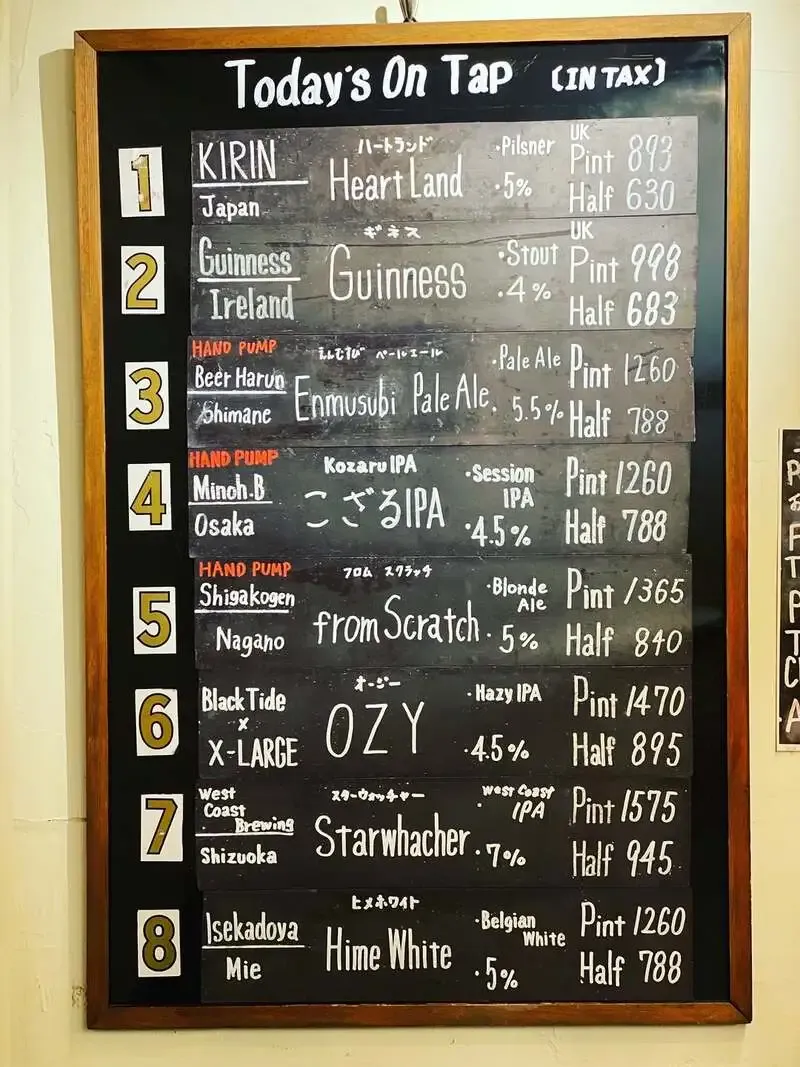 Today's On Tap (IN TAX)
1
KIRIN
Japan
ハートランド
Heart Land
・Pilsner
・5%
UK
Pint 893
Half 630
2
Guinness
Ireland
ギネス
Guinness
・Stout
・4%
UK
Pint 998
Half 683
3
HAND PUMP
Beer Haruo
Shimane
えんむすび ペールエール
Enmusubi Pale Ale.
・Pale Ale
5.5%
Pint 1260
Half 788
4
HAND PUMP
Minoh.B
Osaka
Kozaru IPA
こざるIPA
・Session
IPA
・4.5%
Pint 1260
Half 788
5
HAND PUMP
Shigakogen
Nagano
フロム スクラッチ
from Scratch
・Blonde
Ale
・5%
Pint 1365
Half 840
6
Black Tide
x
X-LARGE
オージー
OZY
・Hazy IPA
・4.5%
Pint 1470
Half 895
7
West
Coast
Brewing
Shizuoka
スターウォッチャー
Starwhacher
・West Coast
IPA
・7%
Pint 1575
Half 945
8
Isekadoya
Mie
ヒメホワイト
Hime White
・Belgian
White
・5%
Pint 1260
Half 788